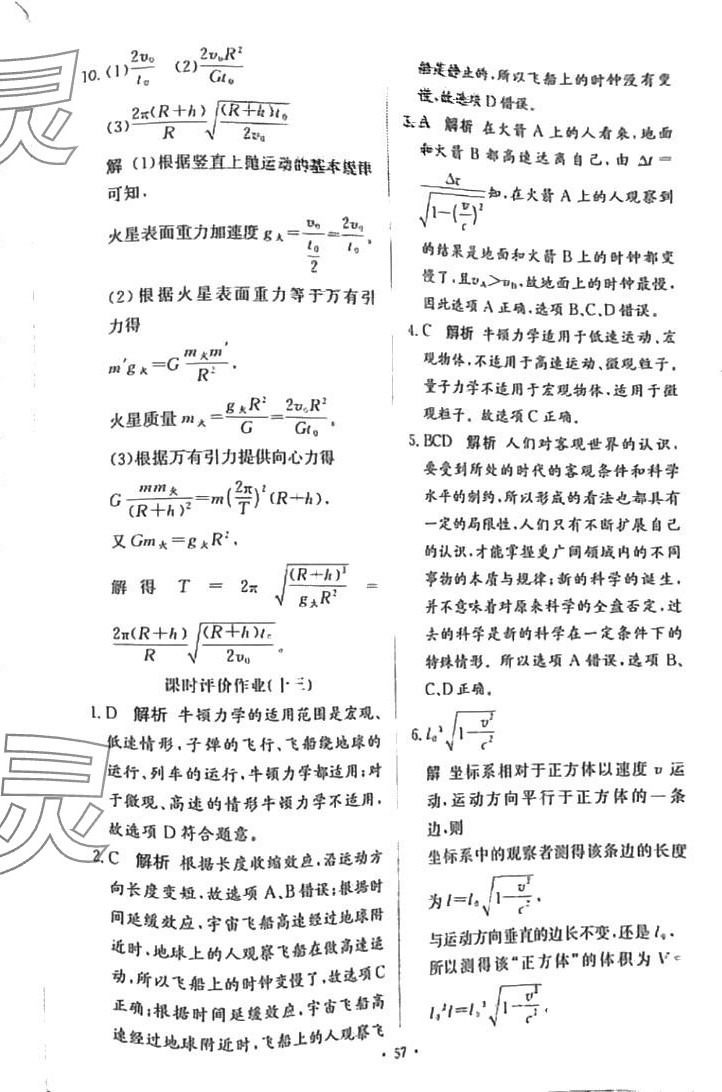 10. (1) 2v₀/t₀ (2) 2v₀R²/Gt₀
(3) 2π(R+h)/R √((R+h)t₀/2v₀)
解 (1)根据竖直上抛运动的基本规律
可知,
火星表面重力加速度 g火=v₀/(t₀/2)=2v₀/t₀。
(2)根据火星表面重力等于万有引
力得
m′g火=G m火m′/R²,
火星质量 m火=g火R²/G=2v₀R²/Gt₀。
(3)根据万有引力提供向心力得
G mm火/(R+h)²=m(2π/T)²(R+h),
又 Gm火=g火R²,
解 得 T = 2π √((R+h)³/g火R²) =
2π(R+h)/R √((R+h)t₀/2v₀)。
课时评价作业(十三)
1. D 解析 牛顿力学的适用范围是宏观、
低速情形,子弹的飞行、飞船绕地球的
运行、列车的运行,牛顿力学都适用;对
于微观、高速的情形牛顿力学不适用,
故选项 D 符合题意。
2. C 解析 根据长度收缩效应,沿运动方
向长度变短,故选项 A、B 错误;根据时
间延缓效应,宇宙飞船高速经过地球附
近时,地球上的人观察飞船在做高速运
动,所以飞船上的时钟变慢了,故选项 C
正确;根据时间延缓效应,宇宙飞船高
速经过地球附近时,飞船上的人观察飞
船是静止的,所以飞船上的时钟没有变
慢,故选项 D 错误。
3. A 解析 在火箭 A 上的人看来,地面
和火箭 B 都高速远离自己,由 Δt =
Δτ/√(1-(v/c)²) 知,在火箭 A 上的人观察到
的结果是地面和火箭 B 上的时钟都变
慢了,且 vA>vB,故地面上的时钟最慢,
因此选项 A 正确,选项 B、C、D 错误。
4. C 解析 牛顿力学适用于低速运动、宏
观物体,不适用于高速运动、微观粒子。
量子力学不适用于宏观物体,适用于微
观粒子。故选项 C 正确。
5. BCD 解析 人们对客观世界的认识,
要受到所处的时代的客观条件和科学
水平的制约,所以形成的看法也都具有
一定的局限性,人们只有不断扩展自己
的认识,才能掌握更广阔领域内的不同
事物的本质与规律;新的科学的诞生,
并不意味着对原来科学的全盘否定,过
去的科学是新的科学在一定条件下的
特殊情形。所以选项 A 错误,选项 B、
C、D 正确。
6. l₀³√(1-v²/c²)
解 坐标系相对于正方体以速度 v 运
动,运动方向平行于正方体的一条
边,则
坐标系中的观察者测得该条边的长度
为 l=l₀√(1-v²/c²),
与运动方向垂直的边长不变,还是 l₀,
所以测得该“正方体”的体积为 V=
l₀²l=l₀³√(1-v²/c²)。
· 57 ·
灵
灵